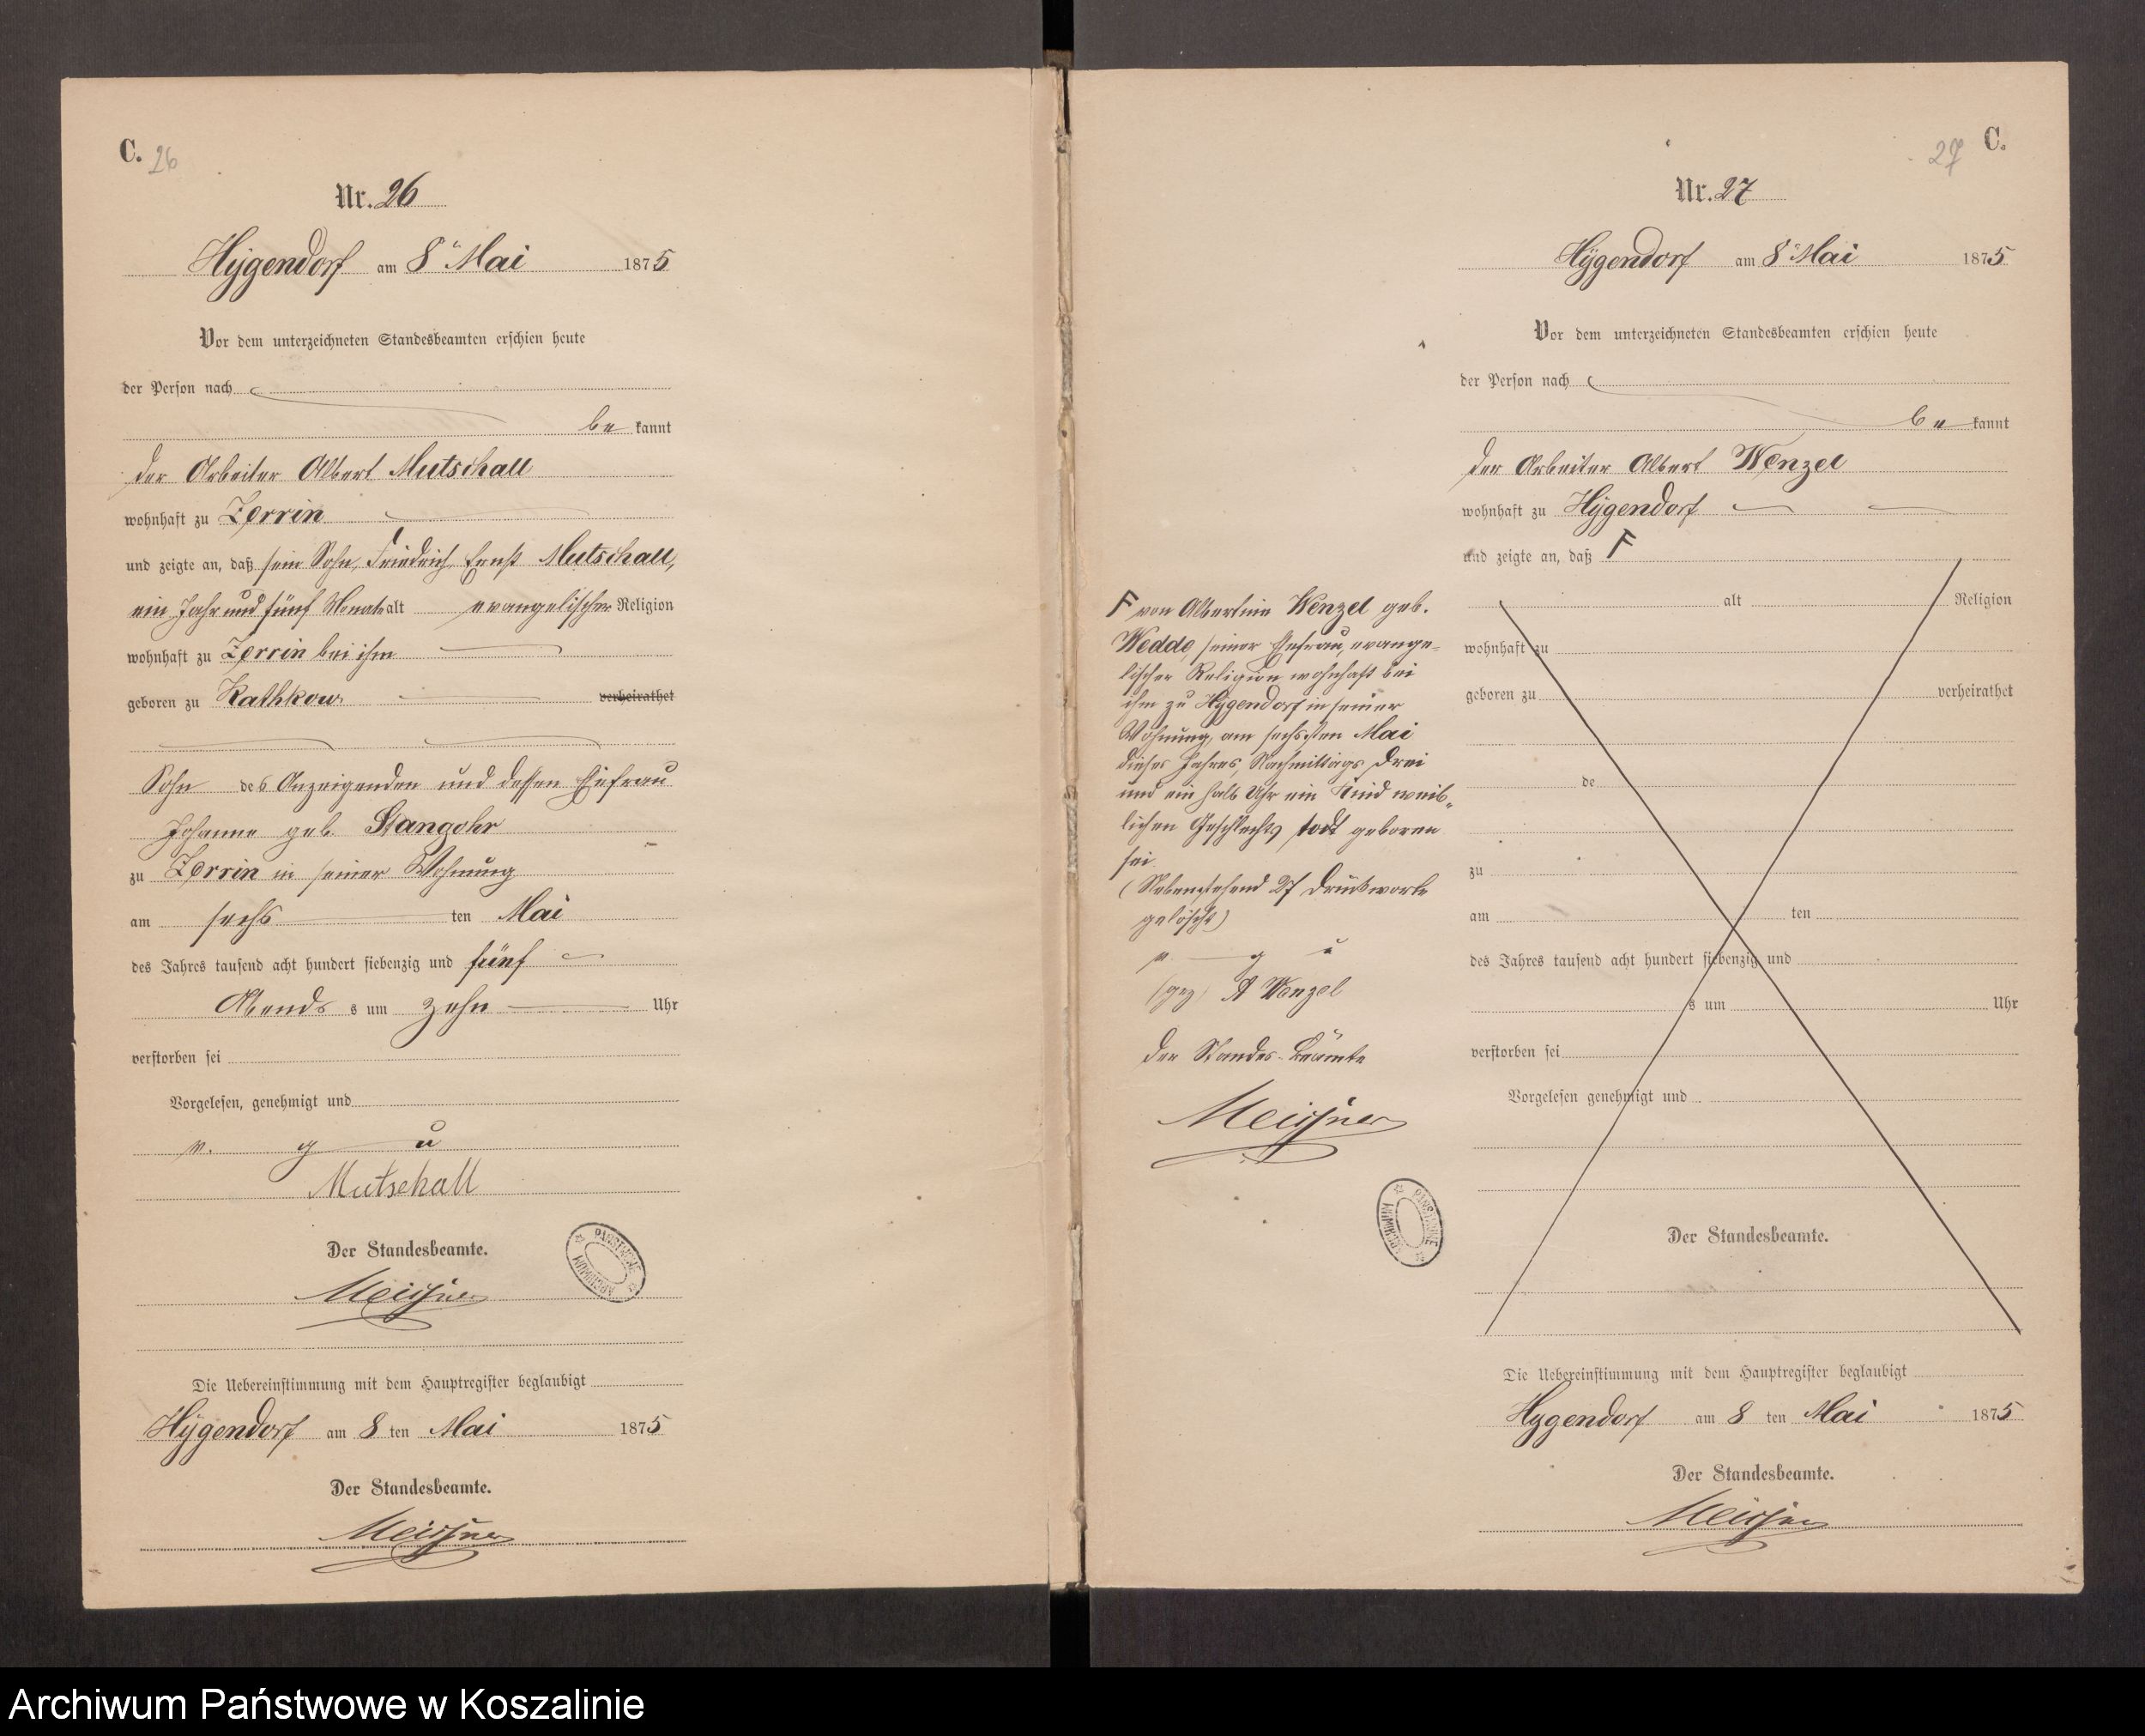 C. 26
Nr. 26
Hygendorf am 8t Mai 1875
Vor dem unterzeichneten Standesbeamten erschien heute
der Person nach
be kannt
der Arbeiter Albert Mutschall
wohnhaft zu Zerrin
und zeigte an, daß sein Sohn, Friedrich Ernst Mutschall,
ein Jahr und fünf Monate alt evangelischer Religion
wohnhaft zu Zerrin bei ihm
geboren zu Kathkow verheirathet
Sohn des Anzeigenden und dessen Ehefrau
Johanne geb. Stangohr
zu Zerrin in seiner Wohnung
am sechs ten Mai
des Jahres tausend acht hundert siebenzig und fünf
Abends s um zehn Uhr
verstorben sei
Vorgelesen, genehmigt und
v. g u
Mutschall
Der Standesbeamte.
Meissner
ARCHIWUM PAŃSTWOWE
Die Uebereinstimmung mit dem Hauptregister beglaubigt
Hygendorf am 8 ten Mai 1875
Der Standesbeamte.
Meissner
27 C.
Nr. 27
Hygendorf am 8t Mai 1875
Vor dem unterzeichneten Standesbeamten erschien heute
der Person nach
be kannt
der Arbeiter Albert Wenzel
wohnhaft zu Hygendorf
und zeigte an, daß F
alt Religion
wohnhaft zu
geboren zu verheirathet
de
zu
am ten
des Jahres tausend acht hundert siebenzig und
s um Uhr
verstorben sei
Vorgelesen genehmigt und
Der Standesbeamte.
F von Albertine Wenzel geb.
Wedde, seiner Ehefrau, evange-
lischer Religion wohnhaft bei
ihm zu Hygendorf in seiner
Wohnung, am sechsten Mai
dieses Jahres, Nachmittags drei
und ein halb Uhr ein Kind weib-
lichen Geschlechts todt geboren
sei
(Nebenstehend 27 Druckworte
gelöscht)
v. g u
(gez) A Wenzel
Der Standes-Beamte
Meissner
ARCHIWUM PAŃSTWOWE
Die Uebereinstimmung mit dem Hauptregister beglaubigt
Hygendorf am 8 ten Mai 1875
Der Standesbeamte.
Meissner
Archiwum Państwowe w Koszalinie